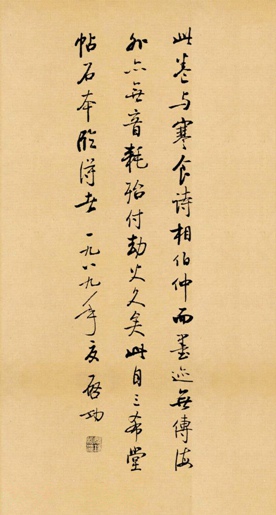 此卷与寒食诗相伯仲而墨迹無傳海
外亦無音耗殆付劫火久矣此自三希堂
帖石本臨得者一九八九年夏啓功